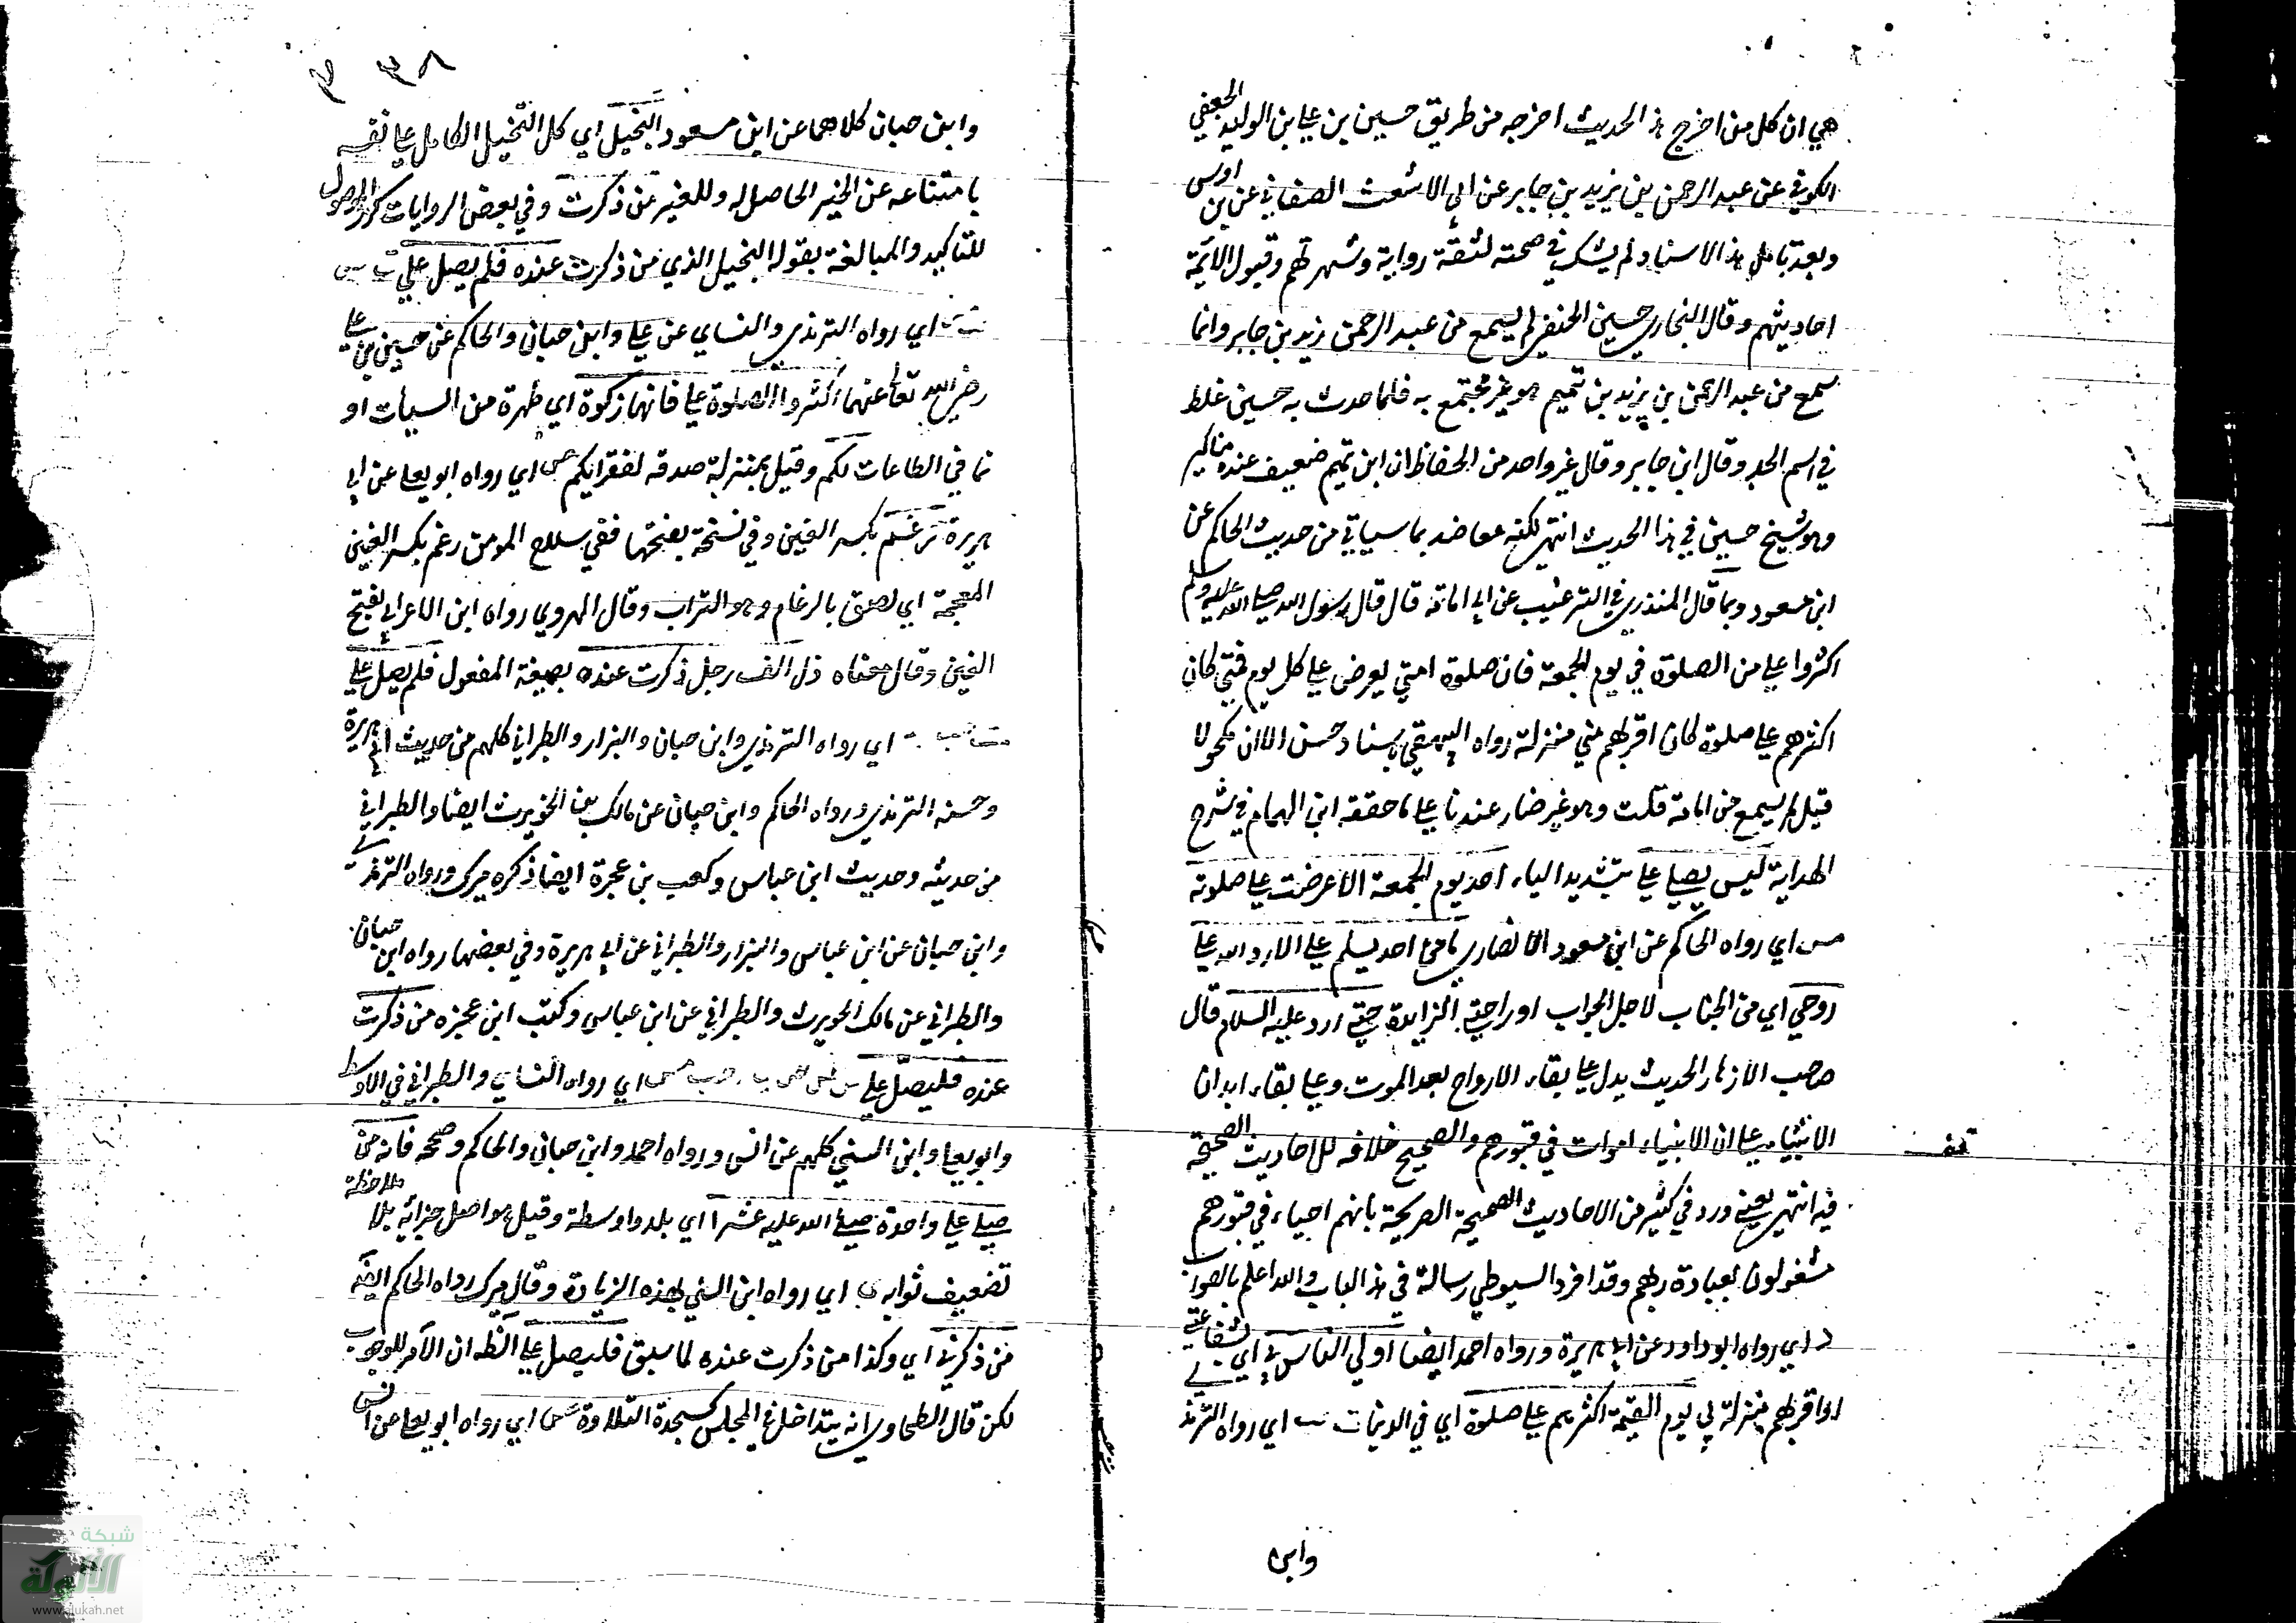 هي ان كل من اخرج هذا الحديث اخرجه من طريق حسين بن علي بن الوليد الجعفي
الكوفي عن عبد الرحمن بن يزيد بن جابر عن ابي الاشعث الصنعاني عن بن اوس
وبعد تامل هذا الاسناد لم يشك في صحته لثقة رواية وشهرتهم وقبول الائمة
احاديثهم وقال البخاري حسين الجعفي لم يسمع من عبد الرحمن زيد بن جابر وانما
سمع من عبد الرحمن بن يزيد بن تميم هو غير مجتمع به فلما حدث به حسين غلط
في اسم الجد وقال ابن جابر وقال غير واحد من الحفاظ ان ابن تميم ضعيف عنده مناكير
وهو شيخ حسين في هذا الحديث انتهى لكنه معاضد بما سياتي من حديث الحاكم عن
ابن مسعود وبما قال المنذري في الترغيب عن ابي امامة قال قال رسول الله صلى الله عليه وسلم
اكثروا علي من الصلوة في يوم الجمعة فان صلوة امتي يعرض علي كل يوم فمتى كان
اكثرهم علي صلوة كان اقربهم مني منزلة رواه البيهقي باسناد حسن الا ان مكحولا
قيل لم يسمع من امامة قلت وهو غير ضار عندنا علي ما حققه ابن الهمام في شرح
الهداية ليس يصلي علي بتشديد الياء احد يوم الجمعة الا عرضت علي صلوته
مس اي رواه الحاكم عن ابن مسعود الانصاري ما من احد يسلم علي الا رد الله علي
روحي اي من الجناب لاجل الجواب او راحتي الزايدة حتي ارد عليه السلام قال
صاحب الازهار الحديث يدل علي بقاء الارواح بعد الموت وعلي بقاء ابدان
الانبياء علي ان الانبياء اموات في قبورهم والصحيح خلافه للاحاديث الصحيحة
فيه انتهى يعني ورد في كثير من الاحاديث الصحيحة الصريحة بانهم احياء في قبورهم
مشغولون بعبادة ربهم وقد افرد السيوطي رسالة في هذا الباب والله اعلم بالصواب
د اي رواه ابو داود عن ابي هريرة ورواه احمد ايضا اولي الناس بي اي بشفاعتي
او اقربهم منزلة لي يوم القيمة اكثرهم علي صلوة اي في الدنيا ت اي رواه الترمذي
وابن
٣٨
وابن حبان كلاهما عن ابن مسعود البخيل اي كل البخيل الكامل علي نفسه
بامتناعه عن الخير الحاصل له وللغير من ذكرت وفي بعض الروايات كرر الموصول
للتاكيد والمبالغة بقوله البخيل الذي من ذكرت عنده فلم يصل علي ت س
اي رواه الترمذي والنساي عن علي وابن حبان والحاكم عن حسين بن علي
رضي الله تعالى عنهما اكثروا الصلوة علي فانها زكوة اي طهرة من السيات او
نما في الطاعات لكم وقيل بمنزلة صدقه لفقرايكم ص اي رواه ابو يعلي عن ابي
هريرة رغم بكسر الغين وفي نسخة بفتحها ففي سلاح المومن رغم بكسر الغين
المعجمة اي لصق بالرغام وهو التراب وقال الهروي رواه ابن الاعرابي بفتح
الغين وقال معناه ذل انف رجل ذكرت عنده بصيغة المفعول فلم يصل علي
اي رواه الترمذي وابن حبان والبزار والطبراني كلهم من حديث ابي هريرة
وحسنه الترمذي ورواه الحاكم وابن حبان عن مالك بن الحويرث ايضا والطبراني
من حديثه وحديث ابن عباس وكعب بن عجرة ايضا ذكره ميرك ورواه الترمذي
وابن حبان عن ابن عباس والبزار والطبراني عن ابي هريرة وفي بعضها رواه ابن حبان
والطبراني عن مالك الحويرث والطبراني عن ابن عباس وكعب ابن عجره من ذكرت
عنده فليصل علي اي رواه النساي والطبراني في الاوسط
وابو يعلي وابن السني كلهم عن انس ورواه احمد وابن حبان والحاكم وصححه فانه من
صلي علي واحدة صلي الله عليه عشرا اي بلا واسطة وقيل هو اصل جزائه بلا ملاحظة
تضعيف ثوابه ي اي رواه ابن السني بهذه الزيادة وقال ميرك رواه الحاكم ايضا
من ذكرني اي وكذا من ذكرت عنده لما سبق فليصل علي الظ ان الامر للوجوب
لكن قال الطحاوي انه يتداخل في المجلس كسجدة التلاوة ص اي رواه ابو يعلي عن انس
شبكة
الألوكة
www.alukah.net